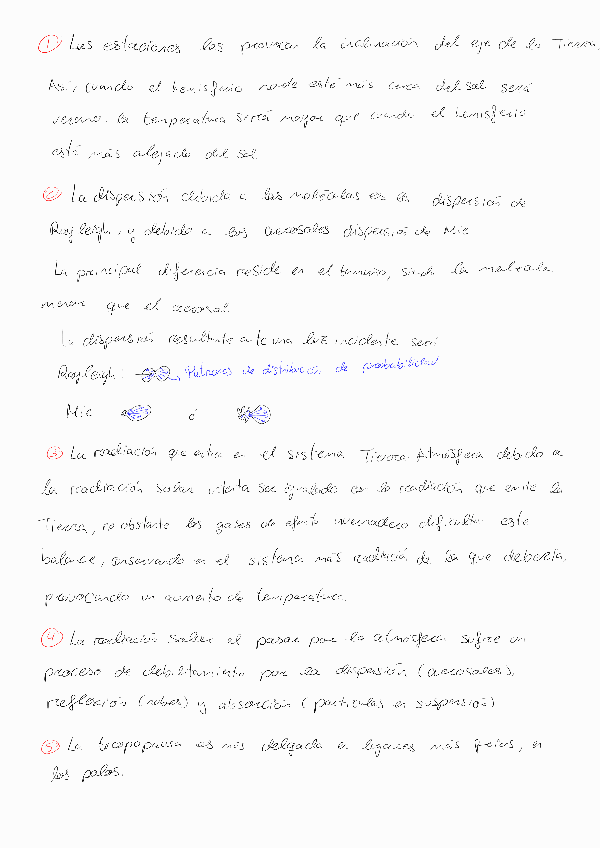 ① Las estaciones las provocan la inclinación del eje de la Tierra,
Así, cuando el hemisferio norte esté más cerca del sol será
verano. la temperatura será mayor que cuando el hemisferio
esté más alejado del sol.
② La dispersión debido a las moléculas es la dispersión de
Rayleigh, y debido a los aerosoles dispersión de Mie
La principal diferencia reside en el tamaño, siendo la molécula
menor que el aerosol
La dispersión resultante ante una luz incidente será:
Rayleigh: Patrones de distribución de probabilidad
Mie ó
③ La radiación que entra en el sistema Tierra-Atmósfera debido a
la radiación solar intenta ser igualado en la radiación que emite la
Tierra, no obstante los gases de efecto invernadero dificultan este
balance, conservando en el sistema más radiación de la que debería,
provocando un aumento de temperatura.
④ La radiación solar al pasar por la atmósfera sufre un
proceso de debilitamiento por la dispersión (aerosoles),
reflexión (nubes) y absorción (partículas en suspensión)
⑤ La tropopausa es más delgada en lugares más fríos, en
los polos.